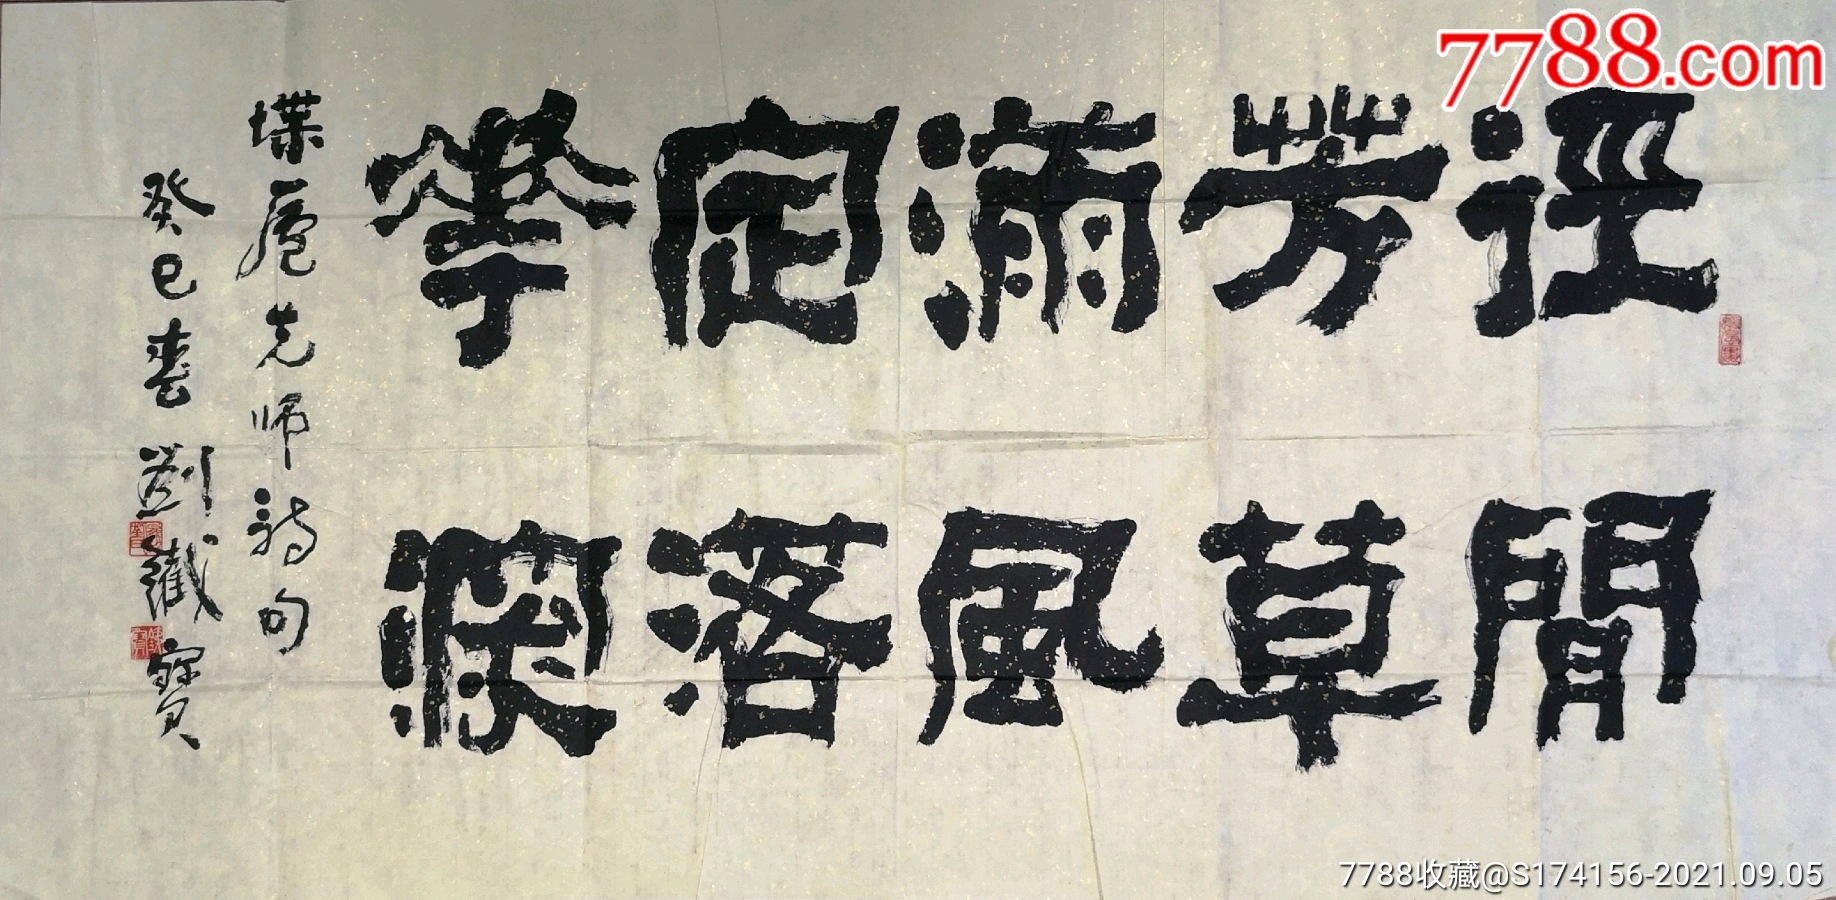 逕閒
芳草
滿風
定落
華深
先师詩句
癸巳春劉鐵寶
7788.com
7788收藏@S174156-2021.09.05